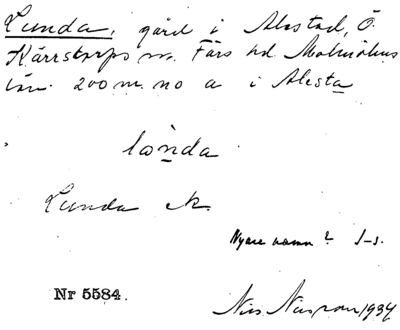 Lunda, gård i Alestad, Ö.
Kärrstorps sn. Färs hd. Malmöhus
län. 200 m. no a i Alesta
lònda
Lunda
Nyare namn? J-s.
Nr 5584.
Nils 1934